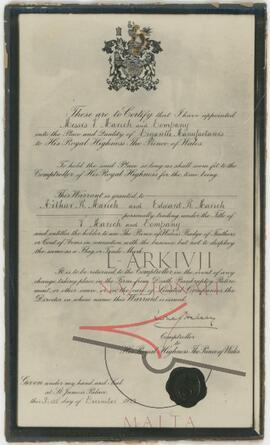 These are to Certify that I have appointed
Messrs V. Marich and Company
into the Place and Quality of Cigarette Manufacturers
to His Royal Highness The Prince of Wales
To hold the said Place so long as shall seem fit to the
Comptroller of His Royal Highness for the time being.
This Warrant is granted to
Arthur R. Marich and Edward R. Marich
personally trading under the Title of
V. Marich and Company
and entitles the holder to use The Prince of Wales's Badge of Feathers
or Coat of Arms in connection with the business but not to display
the same as a Flag or Trade Mark.
ARKIVJI
It is to be returned to the Comptroller in the event of any
change taking place in the Firm from Death, Bankruptcy, Retire-
ment, or other cause, or in the case of Limited Companies, the
Director in whose name this Warrant is issued.
Comptroller
to
His Royal Highness The Prince of Wales
Given under my hand and Seal
at St James's Palace
this 31st day of December
MALTA